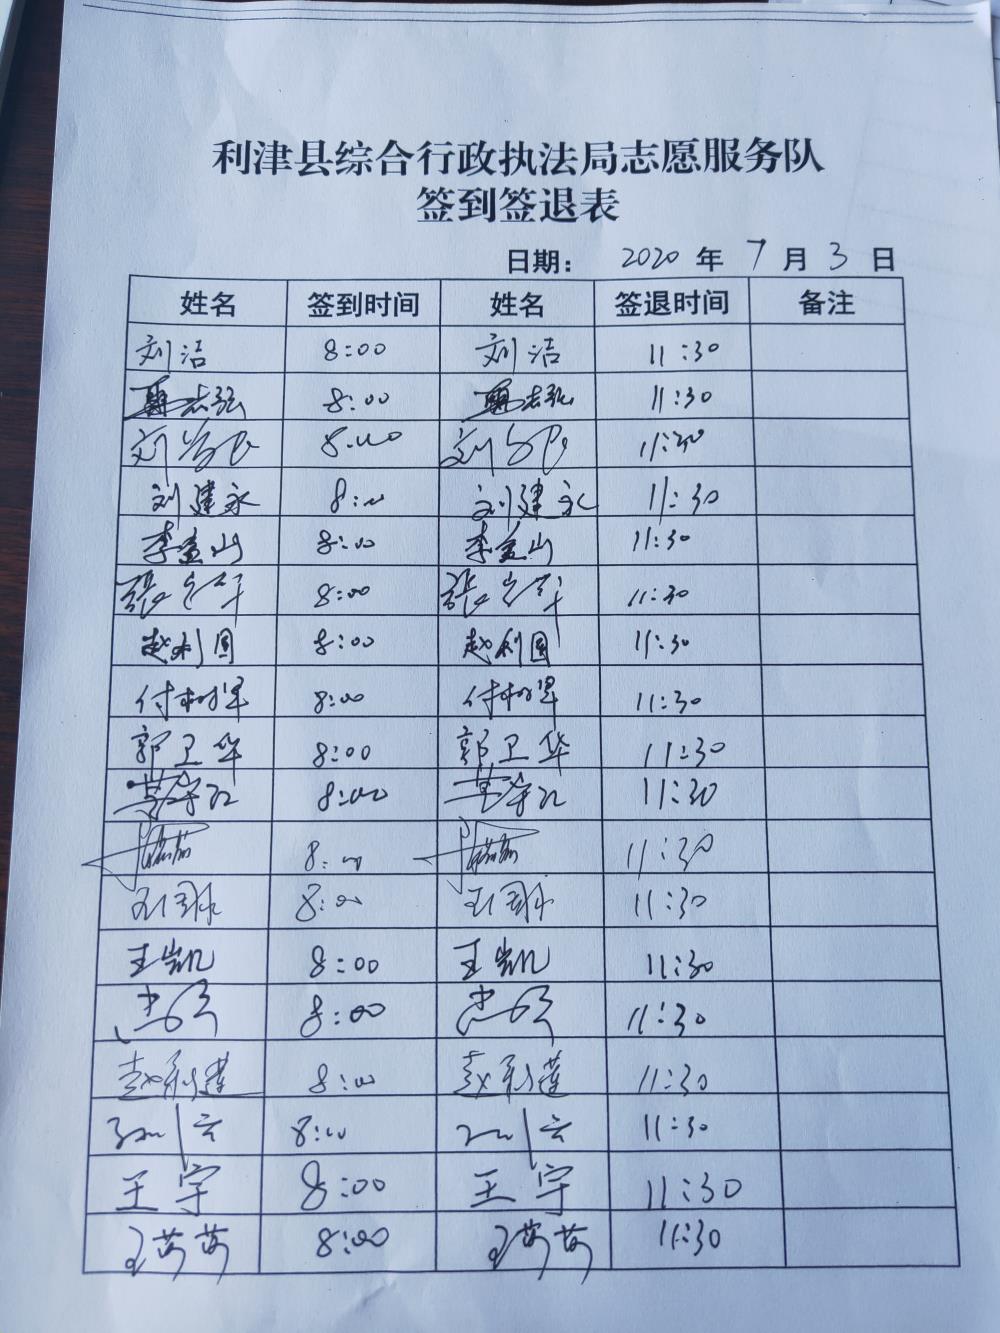 利津县综合行政执法局志愿服务队
签到签退表
日期： 2020 年 7 月 3 日
姓名 签到时间 姓名 签退时间 备注
刘洁 8:00 刘洁 11:30
志强 8:00 志强 11:30
刘 8:00 刘 11:30
刘建永 8:00 刘建永 11:30
李金山 8:00 李金山 11:30
張 8:00 張 11:30
赵利国 8:00 赵利国 11:30
付 8:00 付 11:30
郭卫华 8:00 郭卫华 11:30
8:00 11:30
8:00 11:30
8:00 11:30
王凯 8:00 王凯 11:30
8:00 11:30
赵利莲 8:00 赵利莲 11:30
8:00 11:30
王宇 8:00 王宇 11:30
王苗苗 8:00 王苗苗 11:30